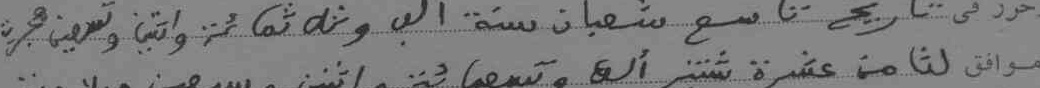 حرر في تاريخ تاسع شعبان سنة ألف وثلاثمائة واثنين وتسعين هجرية
موافق لثامن عشرة شتنبر ألف وتسعمائة واثنين وسبعين ميلادية